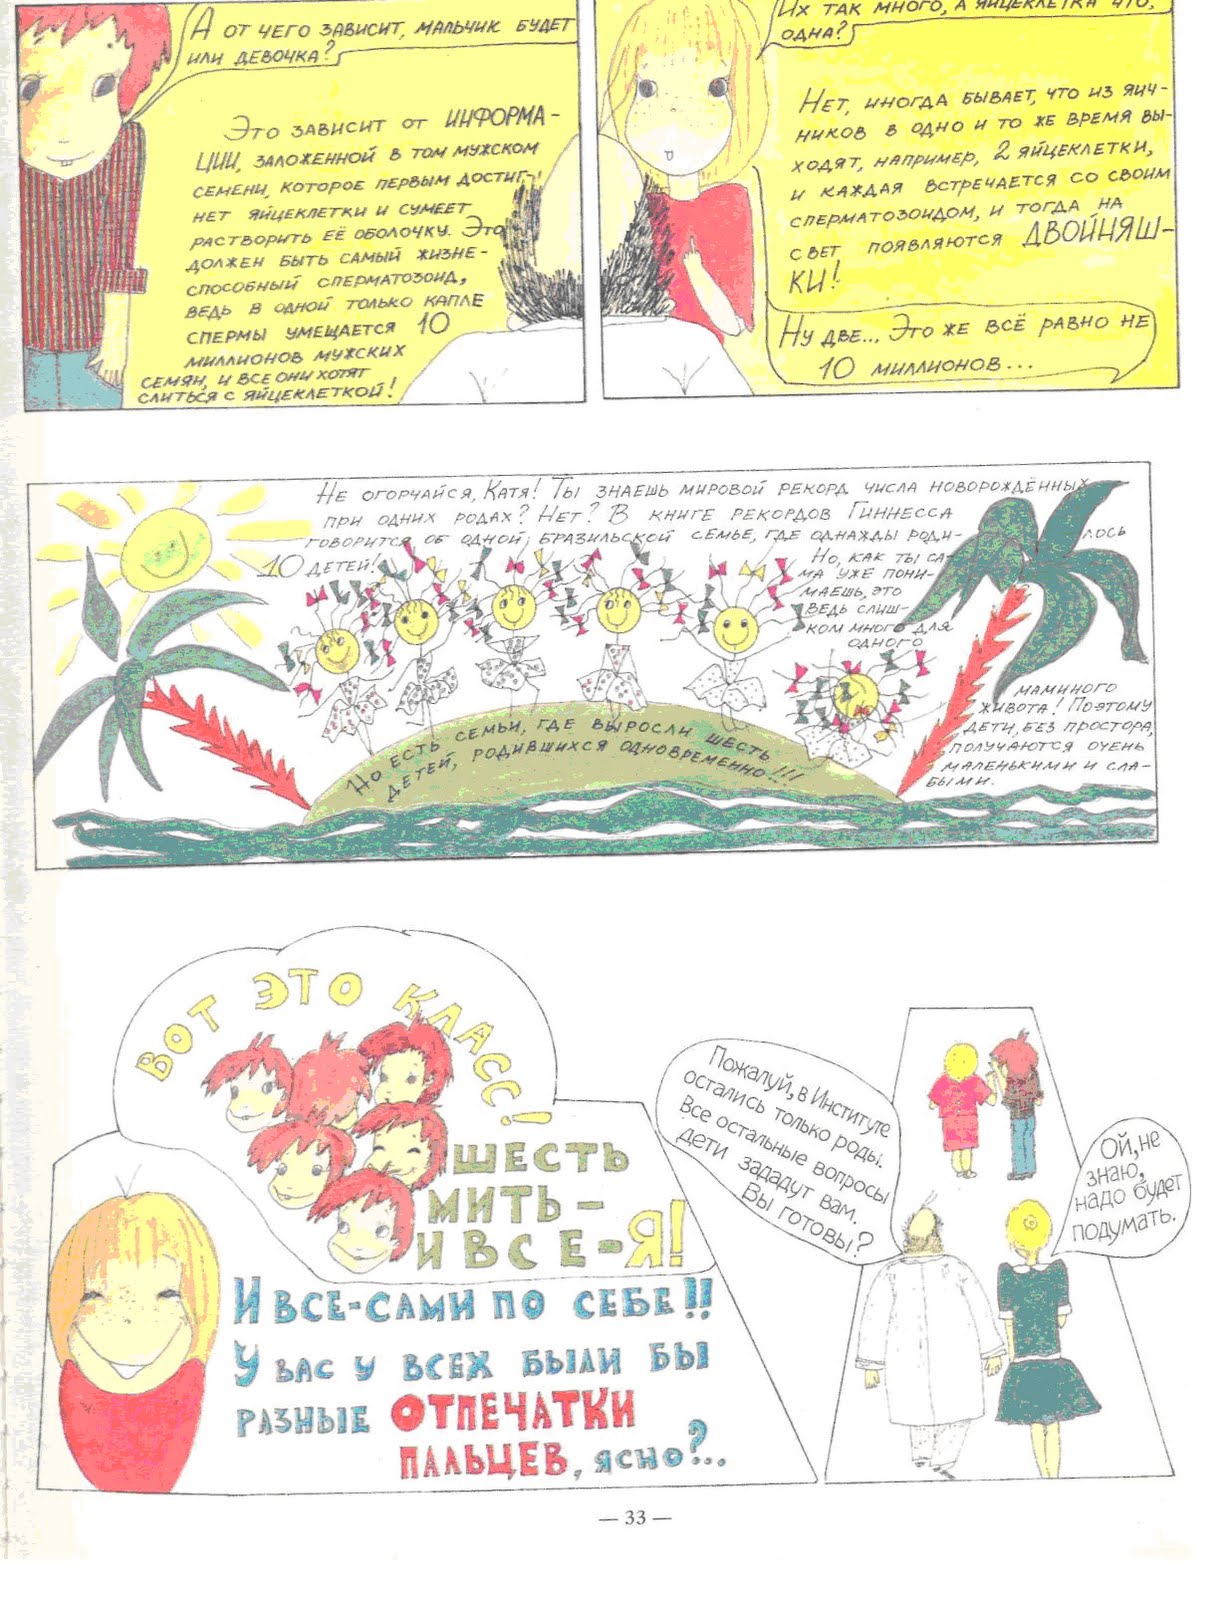 А ОТ ЧЕГО ЗАВИСИТ, МАЛЬЧИК БУДЕТ
ИЛИ ДЕВОЧКА?
ЭТО ЗАВИСИТ ОТ ИНФОРМА-
ЦИИ, ЗАЛОЖЕННОЙ В ТОМ МУЖСКОМ
СЕМЕНИ, КОТОРОЕ ПЕРВЫМ ДОСТИГ-
НЕТ ЯЙЦЕКЛЕТКИ И СУМЕЕТ
РАСТВОРИТЬ ЕЁ ОБОЛОЧКУ. ЭТО
ДОЛЖЕН БЫТЬ САМЫЙ ЖИЗНЕ-
СПОСОБНЫЙ СПЕРМАТОЗОИД,
ВЕДЬ В ОДНОЙ ТОЛЬКО КАПЛЕ
СПЕРМЫ УМЕЩАЕТСЯ 10
МИЛЛИОНОВ МУЖСКИХ
СЕМЯН, И ВСЕ ОНИ ХОТЯТ
СЛИТЬСЯ С ЯЙЦЕКЛЕТКОЙ!
ИХ ТАК МНОГО, А ЯЙЦЕКЛЕТКА ЧТО,
ОДНА?
НЕТ, ИНОГДА БЫВАЕТ, ЧТО ИЗ ЯИЧ-
НИКОВ В ОДНО И ТО ЖЕ ВРЕМЯ ВЫ-
ХОДЯТ, НАПРИМЕР, 2 ЯЙЦЕКЛЕТКИ,
И КАЖДАЯ ВСТРЕЧАЕТСЯ СО СВОИМ
СПЕРМАТОЗОИДОМ, И ТОГДА НА
СВЕТ ПОЯВЛЯЮТСЯ ДВОЙНЯШ-
КИ!
НУ ДВЕ... ЭТО ЖЕ ВСЁ РАВНО НЕ
10 МИЛЛИОНОВ...
НЕ ОГОРЧАЙСЯ, КАТЯ! ТЫ ЗНАЕШЬ МИРОВОЙ РЕКОРД ЧИСЛА НОВОРОЖДЁННЫХ
ПРИ ОДНИХ РОДАХ? НЕТ? В КНИГЕ РЕКОРДОВ ГИННЕССА
ГОВОРИТСЯ ОБ ОДНОЙ БРАЗИЛЬСКОЙ СЕМЬЕ, ГДЕ ОДНАЖДЫ РОДИ-
ЛОСЬ
10 ДЕТЕЙ!
НО, КАК ТЫ СА-
МА УЖЕ ПОНИ-
МАЕШЬ, ЭТО
ВЕДЬ СЛИШ-
КОМ МНОГО ДЛЯ
ОДНОГО
МАМИНОГО
ЖИВОТА! ПОЭТОМУ
ДЕТИ, БЕЗ ПРОСТОРА,
ПОЛУЧАЮТСЯ ОЧЕНЬ
МАЛЕНЬКИМИ И СЛА-
БЫМИ.
НО ЕСТЬ СЕМЬИ, ГДЕ ВЫРОСЛИ ШЕСТЬ
ДЕТЕЙ, РОДИВШИХСЯ ОДНОВРЕМЕННО!!!
ВОТ ЭТО КЛАСС!
ШЕСТЬ
МИТЬ -
И ВСЕ - Я!
И ВСЕ-САМИ ПО СЕБЕ!!
У ВАС У ВСЕХ БЫЛИ БЫ
РАЗНЫЕ ОТПЕЧАТКИ
ПАЛЬЦЕВ, ЯСНО?..
Пожалуй, в Институте
остались только роды.
Все остальные вопросы
дети зададут вам.
Вы готовы?
Ой, не
знаю,
надо будет
подумать.
— 33 —